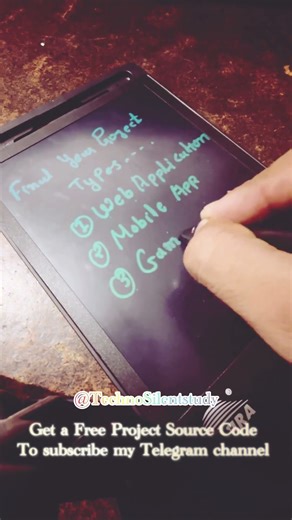 Final Your Project
Types....
① Web Application
② Mobile APP
③ Gam
@TechnoSilentstudy
Get a Free Project Source Code
To subscribe my Telegram channel